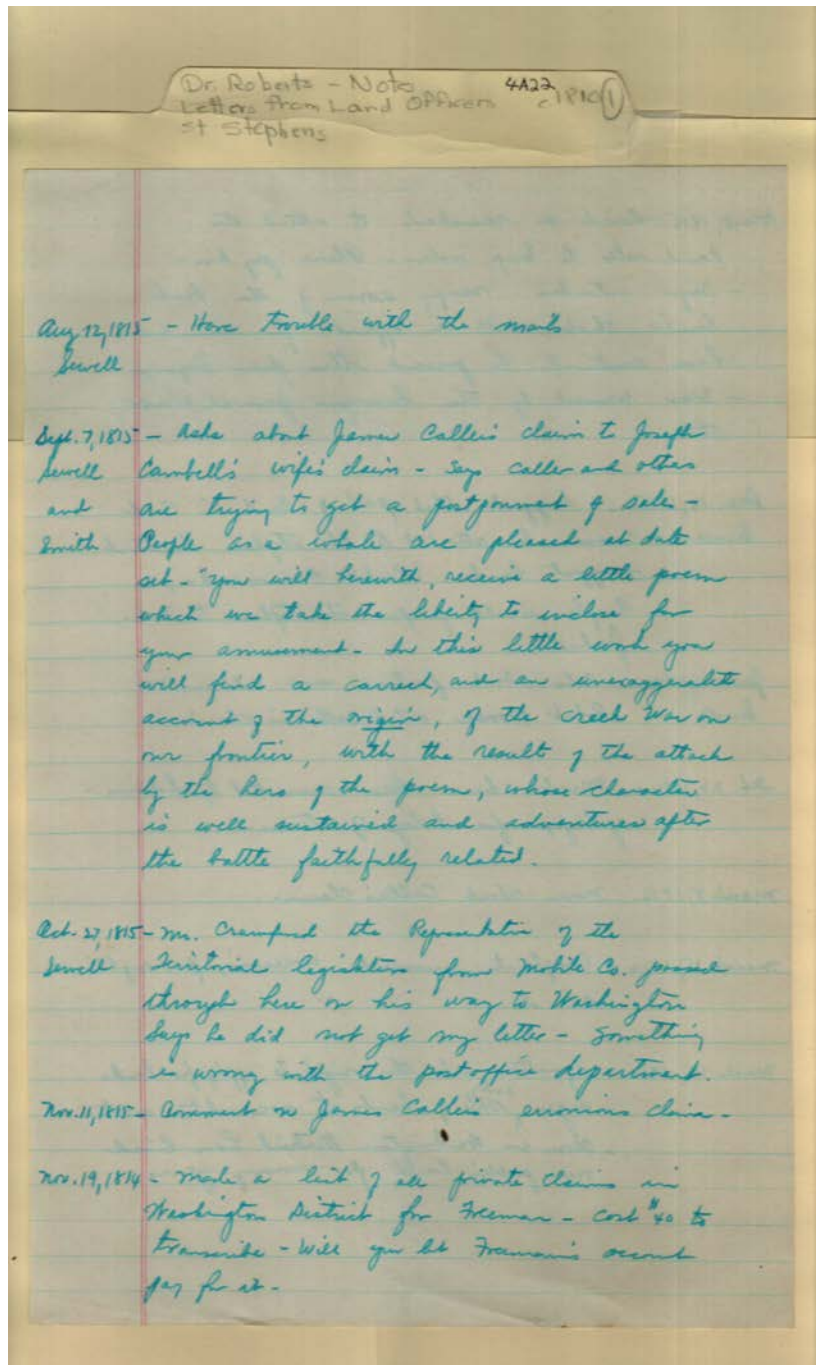 Dr. Roberts - Note 4A22
Letters from Land Officers c 1810 (1)
St Stephens
Aug 12, 1815 - Have trouble with the mails
Sewell
Sept. 7, 1815 - Asks about James Caller's claim to Joseph
Sewell Cambell's wife's claim - Says caller and others
and are trying to get a postponment of sale -
Smith People as a whole are pleased at date
set - "You will herewith, receive a little poem
which we take the liberty to inclose for
your amusement - In this little work you
will find a correct, and an unexaggerated
account of the origin, of the creek War on
our frontier, with the result of the attack
by the hero of the poem, whose character
is well sustained and adventures after
the battle faithfully related.
Oct. 27, 1815 - Mr. Crawford the Representative of the
Sewell Territorial legislature from Mobile Co. passed
through here on his way to Washington
Says he did not get my letter - Something
is wrong with the post office department.
Nov. 11, 1815 - Comment on James Caller's erronious claim -
Nov. 19, 1814 - Made a list of all private claims in
Washington District for Freeman - cost $40 to
transcribe - Will you let Freeman's account
pay for it -